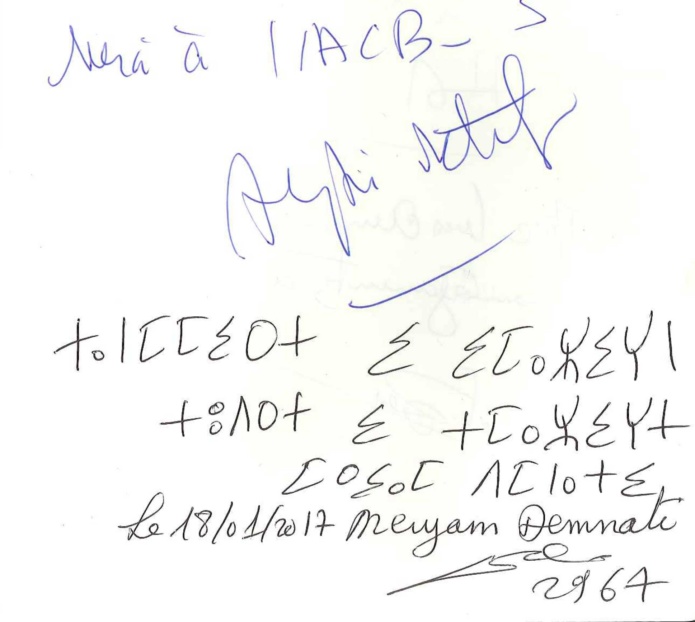 Merci à l'ACB_
ⵜⴰⵏⵎⵎⵉⵔⵜ ⵉ ⵉⵎⴰⵣⵉⵖⵏ
ⵜⵓⴷⵔⵜ ⵉ ⵜⵎⴰⵣⵉⵖⵜ
ⵎⵔⵢⴰⵎ ⴷⵎⵏⴰⵜⵉ
Le 18/01/2017 Meryam Demnati
2967